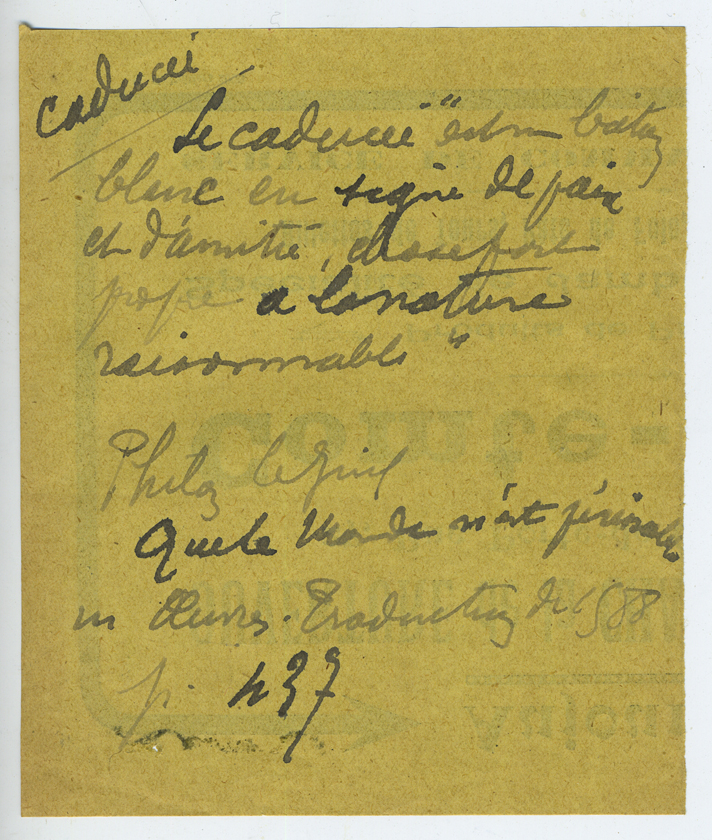 caducei
"Le caducei" est un bâton
blanc en signe de paix
et d'amitié, chose fort
propre a la nature
raisonnable "
Philon le Juif
Que le Monde n'est périssable
in Œuvres. Traduction de 1588
p. 437